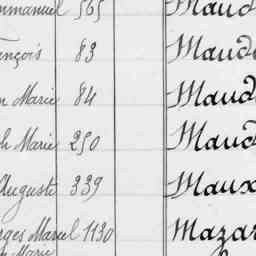 mmanuel 565 Maud
ançois 83 Maud
n Marie 84 Maud
h Marie 250 Maud
Auguste 339 Maux
rges Marcel 1130 Mazar
Marie